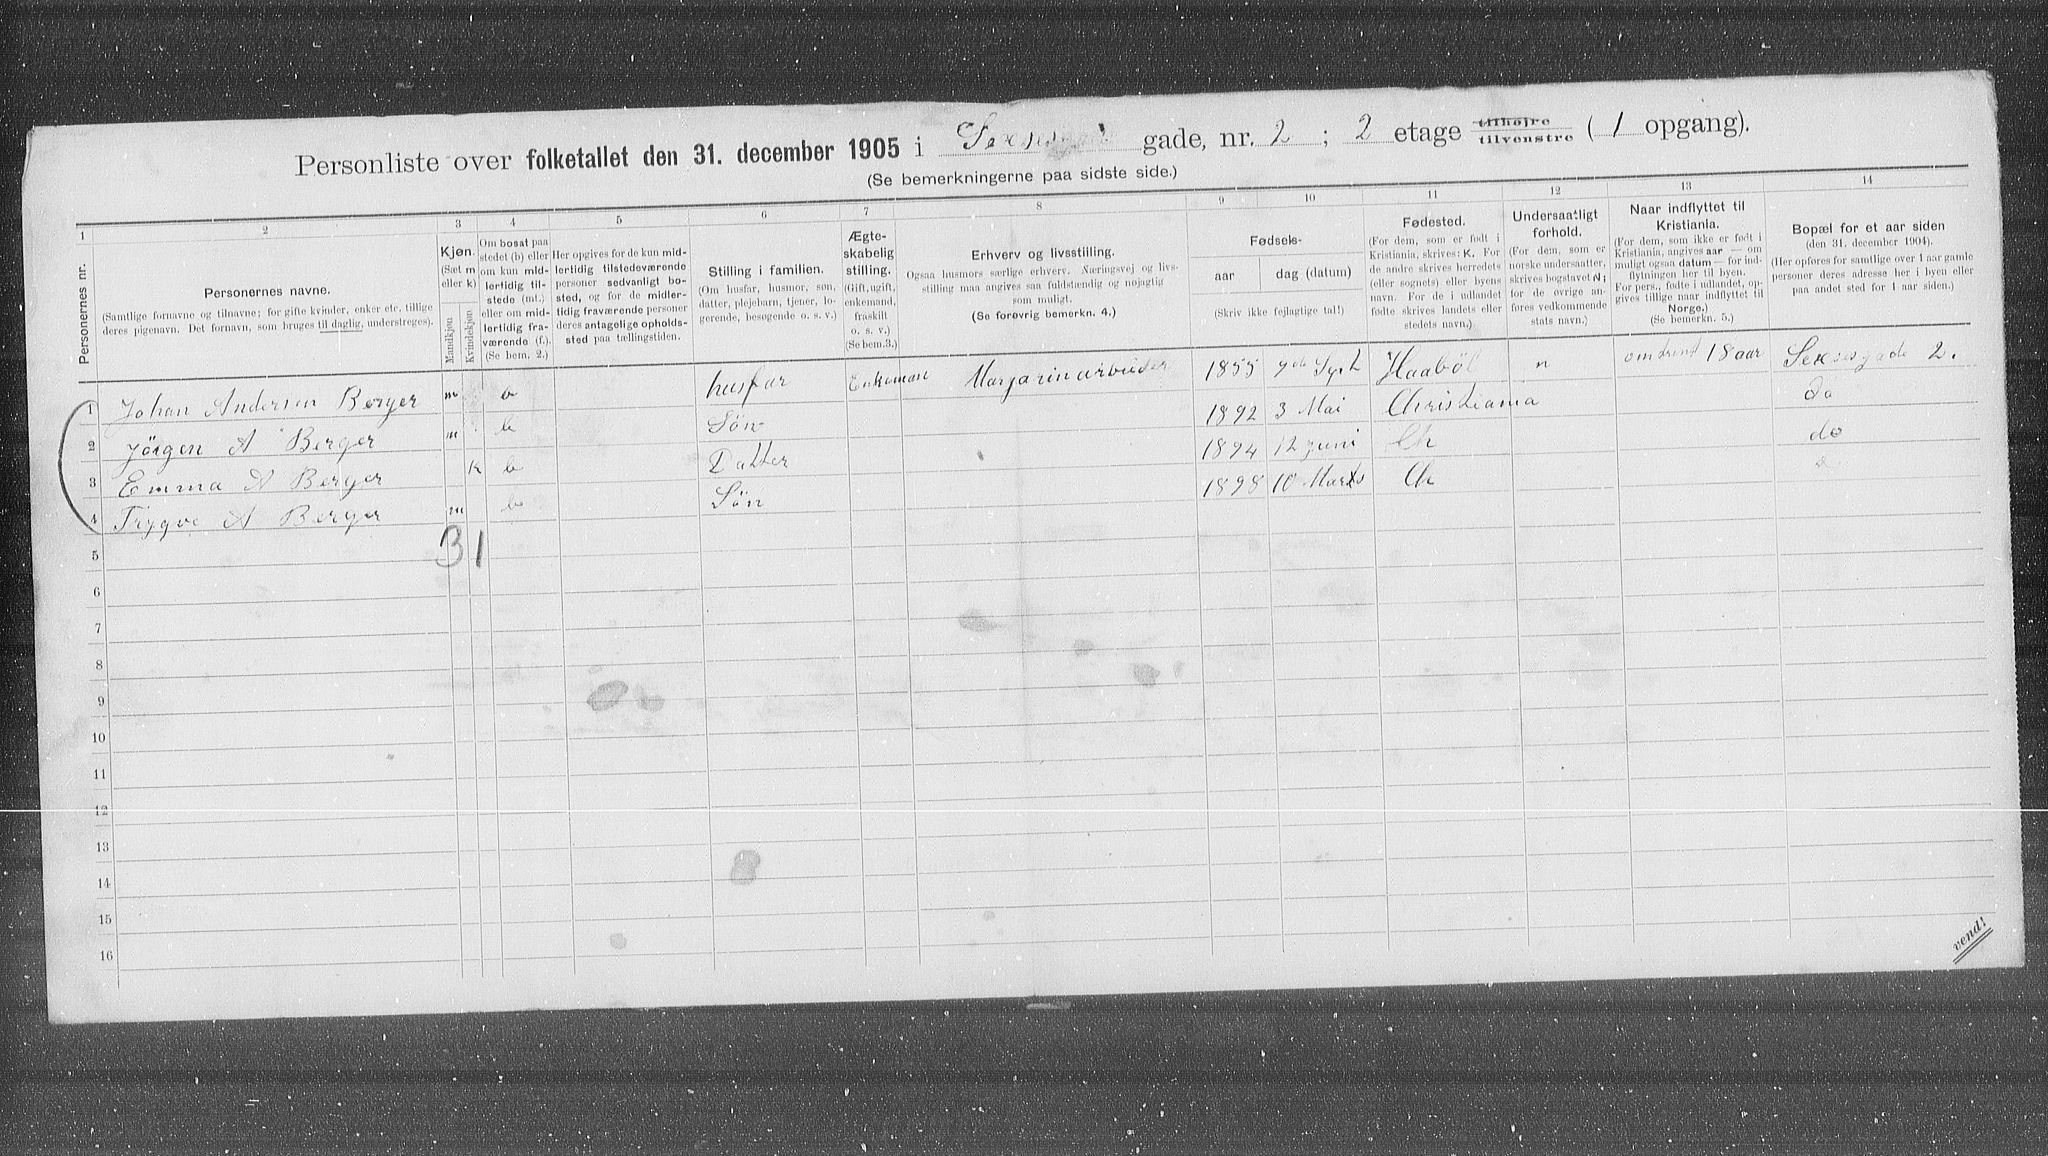 Personliste over folketallet den 31. december 1905 i Sexes gade, nr. 2 ; 2 etage tilhøjre tilvenstre ( 1 opgang).
(Se bemerkningerne paa sidste side.)
1 2 3 4 5 6 7 8 9 10 11 12 13 14
Personernes nr.
Personernes navne.
(Samtlige fornavne og tilnavne; for gifte kvinder, enker etc. tillige
deres pigenavn. Det fornavn, som bruges til daglig, understreges).
Kjøn.
(Sæt m
eller k)
Mandkjøn
Kvindekjøn
Om bosat paa
stedet (b) eller
om kun mid-
lertidig til-
stede (mt.)
eller om mid-
lertidig fra-
værende (f.).
(Se bem. 2.)
Her opgives for de kun mid-
lertidig tilstedeværende
personer sedvanligt bo-
sted, og for de midler-
tidig fraværende personer
deres antagelige opholds-
sted paa tællingstiden.
Stilling i familien.
(Om husfar, husmor, søn,
datter, plejebarn, tjener, lo-
gerende, besøgende o. s. v.)
Ægte-
skabelig
stilling.
(Gift, ugift,
enkemand,
fraskilt
o. s. v.)
(Se bem. 3.)
Erhverv og livsstilling.
Ogsaa husmors særlige erhverv. Næringsvej og livs-
stilling maa angives saa fuldstændig og nøjagtig
som muligt.
(Se forøvrig bemerkn. 4.)
Fødsels-
aar dag (datum)
(Skriv ikke fejlagtige tal!)
Fødested.
(For dem, som er født i
Kristiania, skrives: K. For
de andre skrives herredets
(eller sognets) eller byens
navn. For de i udlandet
fødte skrives landets eller
stedets navn.)
Undersaatligt
forhold.
(For dem, som er
norske undersaatter,
skrives bogstavet N;
for de øvrige an-
føres vedkommende
stats navn.)
Naar indflyttet til
Kristiania.
(For dem, som ikke er født i
Kristiania, angives aar — om
muligt ogsaa datum — for ind-
flytningen her til byen.
For pers., fødte i udlandet, op-
gives tillige naar indflyttet til
Norge.)
(Se bemerkn. 5.)
Bopæl for et aar siden
(den 31. december 1904).
(Her opføres for samtlige over 1 aar gamle
personer deres adresse her i byen eller
paa andet sted for 1 aar siden.)
1 Johan Andersen Berger m b husfar Enkeman Margarinarbeider 1855 Haabøl n omdrent 18 aar Seksesgade 2.
2 Jörgen A Berger m b Sön 1892 3 Mai Christiania do
3 Emma A Berger k b Datter 1894 12 Juni Ch do
4 Trygve A Berger m b Sön 1898 10 Marts Ch
5 3 1
6
7
8
9
10
11
12
13
14
15
16
vend!